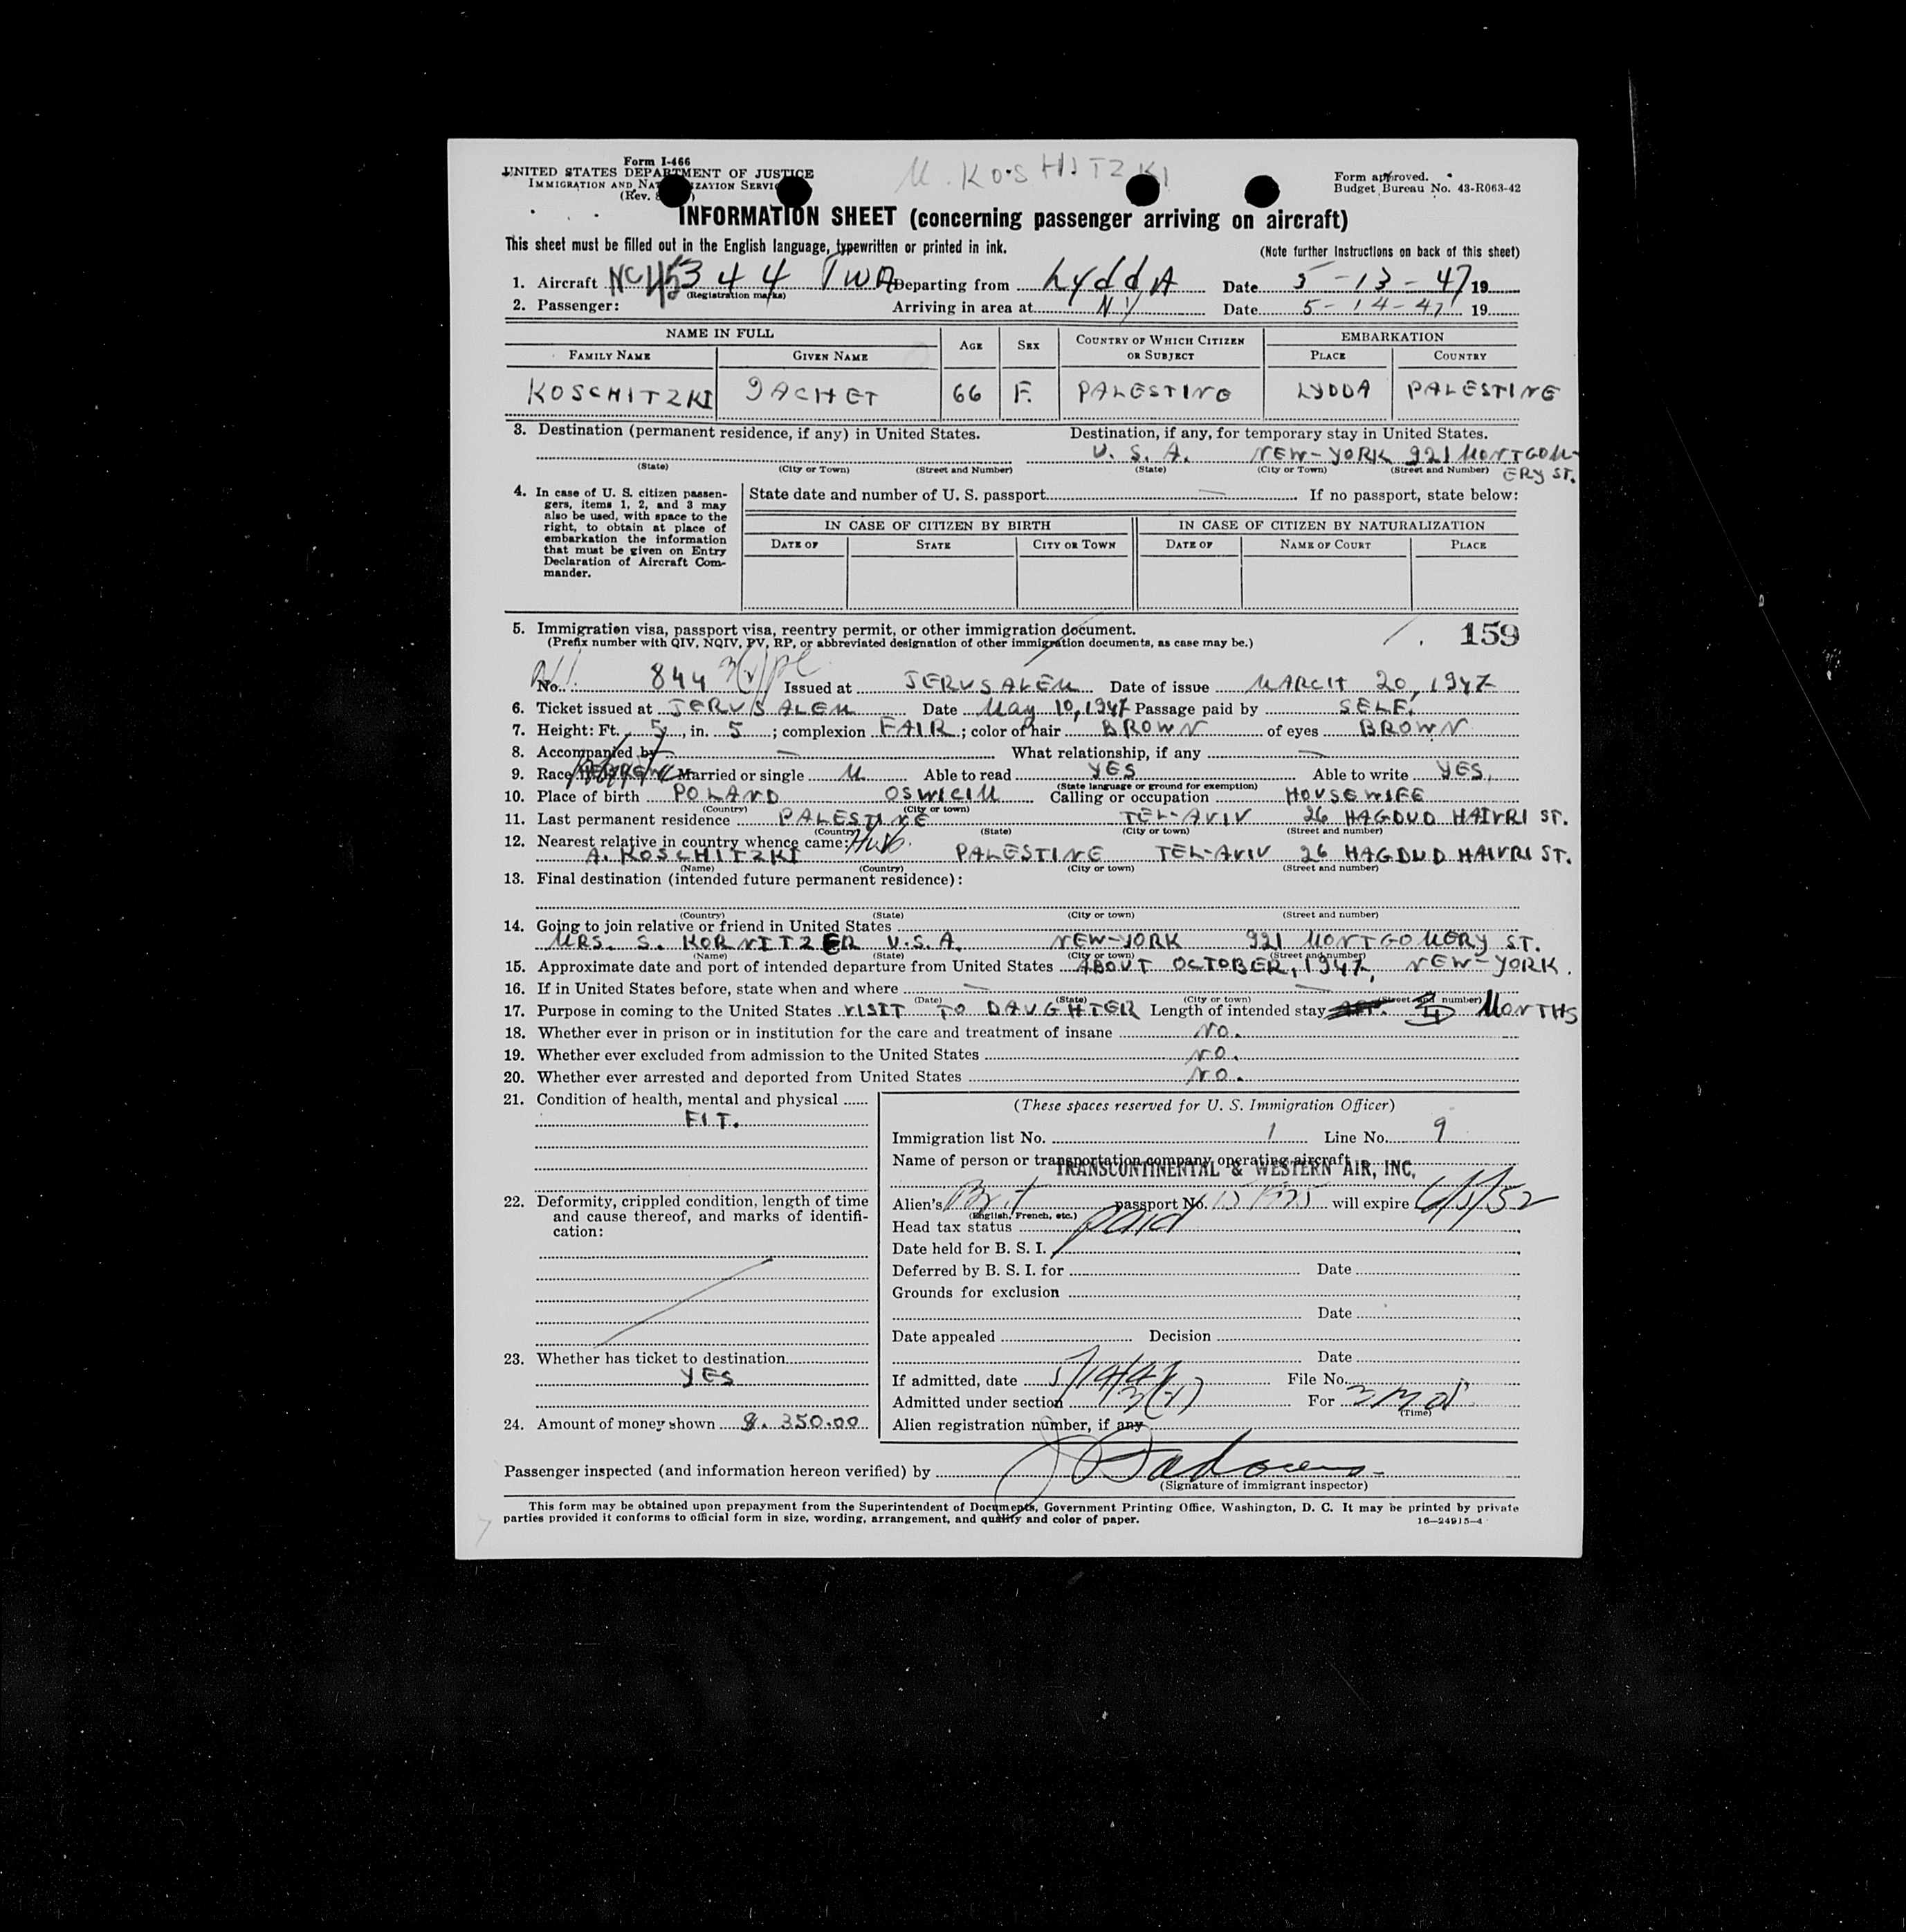 Form I-466
UNITED STATES DEPARTMENT OF JUSTICE
IMMIGRATION AND NATURALIZATION SERVICE
(Rev.
M. KOSHITZKI
Form approved.
Budget Bureau No. 43-R063-42
INFORMATION SHEET (concerning passenger arriving on aircraft)
This sheet must be filled out in the English language, typewritten or printed in ink. (Note further instructions on back of this sheet)
1. Aircraft 344 TWA Departing from LyddA Date 5-13-47 19
(Registration marks)
2. Passenger: Arriving in area at NY Date 5-14-47 19
NAME IN FULL AGE SEX COUNTRY OF WHICH CITIZEN OR SUBJECT EMBARKATION
FAMILY NAME GIVEN NAME PLACE COUNTRY
KOSCHITZKI JACHET 66 F. PALESTINE LYDDA PALESTINE
3. Destination (permanent residence, if any) in United States. Destination, if any, for temporary stay in United States.
U.S.A. NEW-YORK 921 MONTGOM-
(State) (City or Town) (Street and Number) (State) (City or Town) (Street and Number)
ERY ST.
4. In case of U. S. citizen passengers, items 1, 2, and 3 may also be used, with space to the right, to obtain at place of embarkation the information that must be given on Entry Declaration of Aircraft Commander.
State date and number of U. S. passport — If no passport, state below:
IN CASE OF CITIZEN BY BIRTH IN CASE OF CITIZEN BY NATURALIZATION
DATE OF STATE CITY OR TOWN DATE OF NAME OF COURT PLACE
5. Immigration visa, passport visa, reentry permit, or other immigration document.
(Prefix number with QIV, NQIV, PV, RP, or abbreviated designation of other immigration documents, as case may be.)
159
No. 844 Issued at JERUSALEM Date of issue MARCH 20, 1947
6. Ticket issued at JERUSALEM Date May 10, 1947 Passage paid by SELF.
7. Height: Ft. 5, in. 5; complexion FAIR; color of hair BROWN of eyes BROWN
8. Accompanied by — What relationship, if any —
9. Race HEBREW Married or single M Able to read YES Able to write YES.
(State language or ground for exemption)
10. Place of birth POLAND OSWICIM Calling or occupation HOUSEWIFE
(Country) (City or town)
11. Last permanent residence PALESTINE TEL-AVIV 26 HAGDUD HAIVRI ST.
(Country) (State) (City or town) (Street and number)
12. Nearest relative in country whence came: Husb.
A. KOSCHITZKI PALESTINE TEL-AVIV 26 HAGDUD HAIVRI ST.
(Name) (Country) (City or town) (Street and number)
13. Final destination (intended future permanent residence):
(Country) (State) (City or town) (Street and number)
14. Going to join relative or friend in United States
MRS. S. KORNITZER U.S.A. NEW-YORK 921 MONTGOMERY ST.
(Name) (State) (City or town) (Street and number)
15. Approximate date and port of intended departure from United States ABOUT OCTOBER, 1947, NEW-YORK.
16. If in United States before, state when and where —
(Date) (State) (City or town) (Street and number)
17. Purpose in coming to the United States VISIT TO DAUGHTER Length of intended stay MONTHS
18. Whether ever in prison or in institution for the care and treatment of insane NO.
19. Whether ever excluded from admission to the United States NO.
20. Whether ever arrested and deported from United States NO.
21. Condition of health, mental and physical
FIT.
22. Deformity, crippled condition, length of time and cause thereof, and marks of identification:
23. Whether has ticket to destination
YES
24. Amount of money shown $. 350.00
(These spaces reserved for U. S. Immigration Officer)
Immigration list No. 1 Line No. 9
Name of person or transportation company operating aircraft
TRANSCONTINENTAL & WESTERN AIR, INC.
Alien's Brit passport No. will expire 6/5/52
(English, French, etc.)
Head tax status paid
Date held for B. S. I.
Deferred by B. S. I. for Date
Grounds for exclusion
Date
Date appealed Decision
Date
If admitted, date 5/14/47 File No.
Admitted under section 3(2) For 3 mos
(Time)
Alien registration number, if any
Passenger inspected (and information hereon verified) by
(Signature of immigrant inspector)
This form may be obtained upon prepayment from the Superintendent of Documents, Government Printing Office, Washington, D. C. It may be printed by private
parties provided it conforms to official form in size, wording, arrangement, and quality and color of paper. 16—24915-4